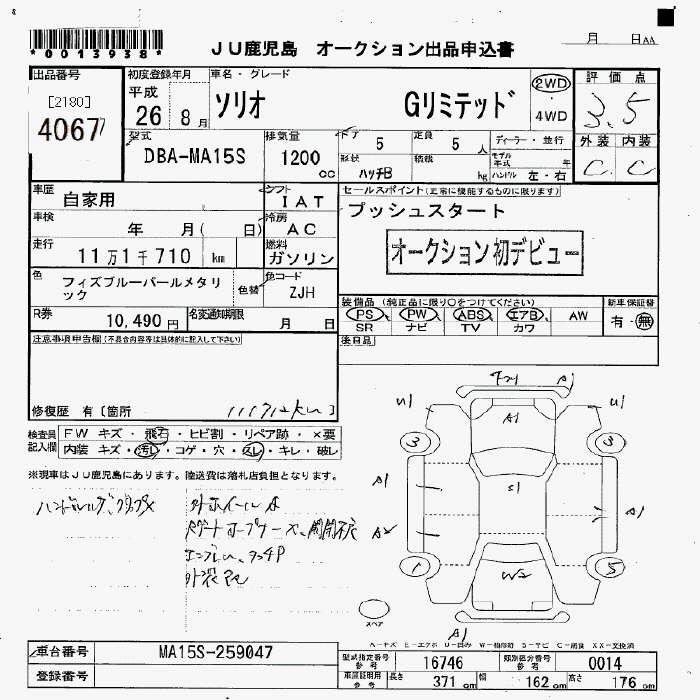 *0013938*
JU鹿児島 オークション出品申込書
月 日AA
出品番号
[2180]
4067
初度登録年月
平成
26 8月
車名・グレード
ソリオ Gリミテッド
2WD
・
4WD
評価点
3.5
外装 内装
C C
型式
DBA-MA15S
排気量
1200
cc
ドア 5
形状 ハッチB
定員 5 人
積載 kg
ディーラー・並行
モデル年式 年
ハンドル 左・右
車歴 自家用
シフト IAT
車検 年 月( 日)
冷房 AC
走行 11万1千710 km
燃料 ガソリン
色 フィズブルーパールメタリック
色替
色コード ZJH
R券 10,490円
名変通知期限 月 日
セールスポイント(正常に機能するものに限ります)
プッシュスタート
オークション初デビュー
装備品 (純正品に限り○をつけてください)
PS PW ABS エアB AW
SR ナビ TV カワ
新車保証書
有・無
後日品
注意事項申告欄(不具合内容等は具体的に記入して下さい)
修復歴 有〔箇所
111712km
検査員記入欄
FW キズ・飛石・ヒビ割・リペア跡・×要
内装 キズ・汚レ・コゲ・穴・スレ・キレ・破レ
※現車はJU鹿児島にあります。陸送費は落札店負担となります。
A1
U1
U1
3
3
A1
A1
S1
A1
A2
1
5
W2
スペア
A1
A-キズ E-エクボ U-凹み W-補修跡 S-サビ C-腐食 XX-交換済
車台番号 MA15S-259047
登録番号
型式指定番号 参考 16746
類別区分番号 参考 0014
車庫証明用 参考 長さ 371 cm 幅 162 cm 高さ 176 cm